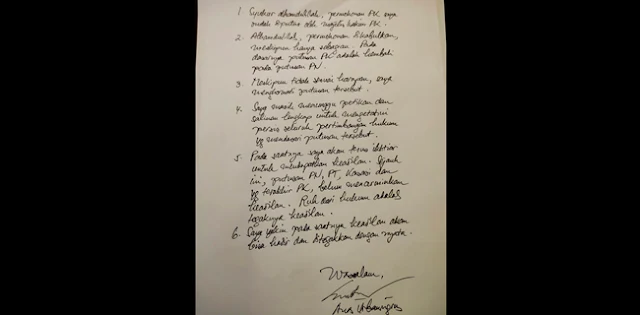 1. Syukur Alhamdulillah, permohonan PK saya
sudah diputus oleh majelis hakim PK.
2. Alhamdulillah, permohonan dikabulkan,
meskipun hanya sebagian. Pada
dasarnya putusan PK adalah kembali
pada putusan PN.
3. Meskipun tidak sesuai harapan, saya
menghormati putusan tersebut.
4. Saya masih menunggu petikan dan
salinan lengkap untuk mengetahui
persis seluruh pertimbangan hukum
yg mendasari putusan tersebut.
5. Pada saatnya saya akan terus ikhtiar
untuk mendapatkan keadilan. Sejauh
ini, putusan PN, PT, Kasasi dan
yg terakhir PK, belum mencerminkan
keadilan. Ruh dari hukum adalah
tegaknya keadilan.
6. Saya yakin pada saatnya keadilan akan
bisa hadir dan ditegakkan dengan nyata.
Wassalam,
Anas Urbaningrum